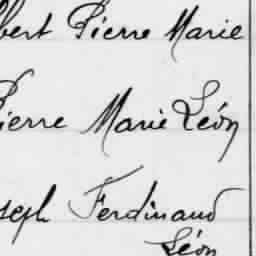 bert Pierre Marie
Pierre Marie Léon
seph Ferdinand
Léon